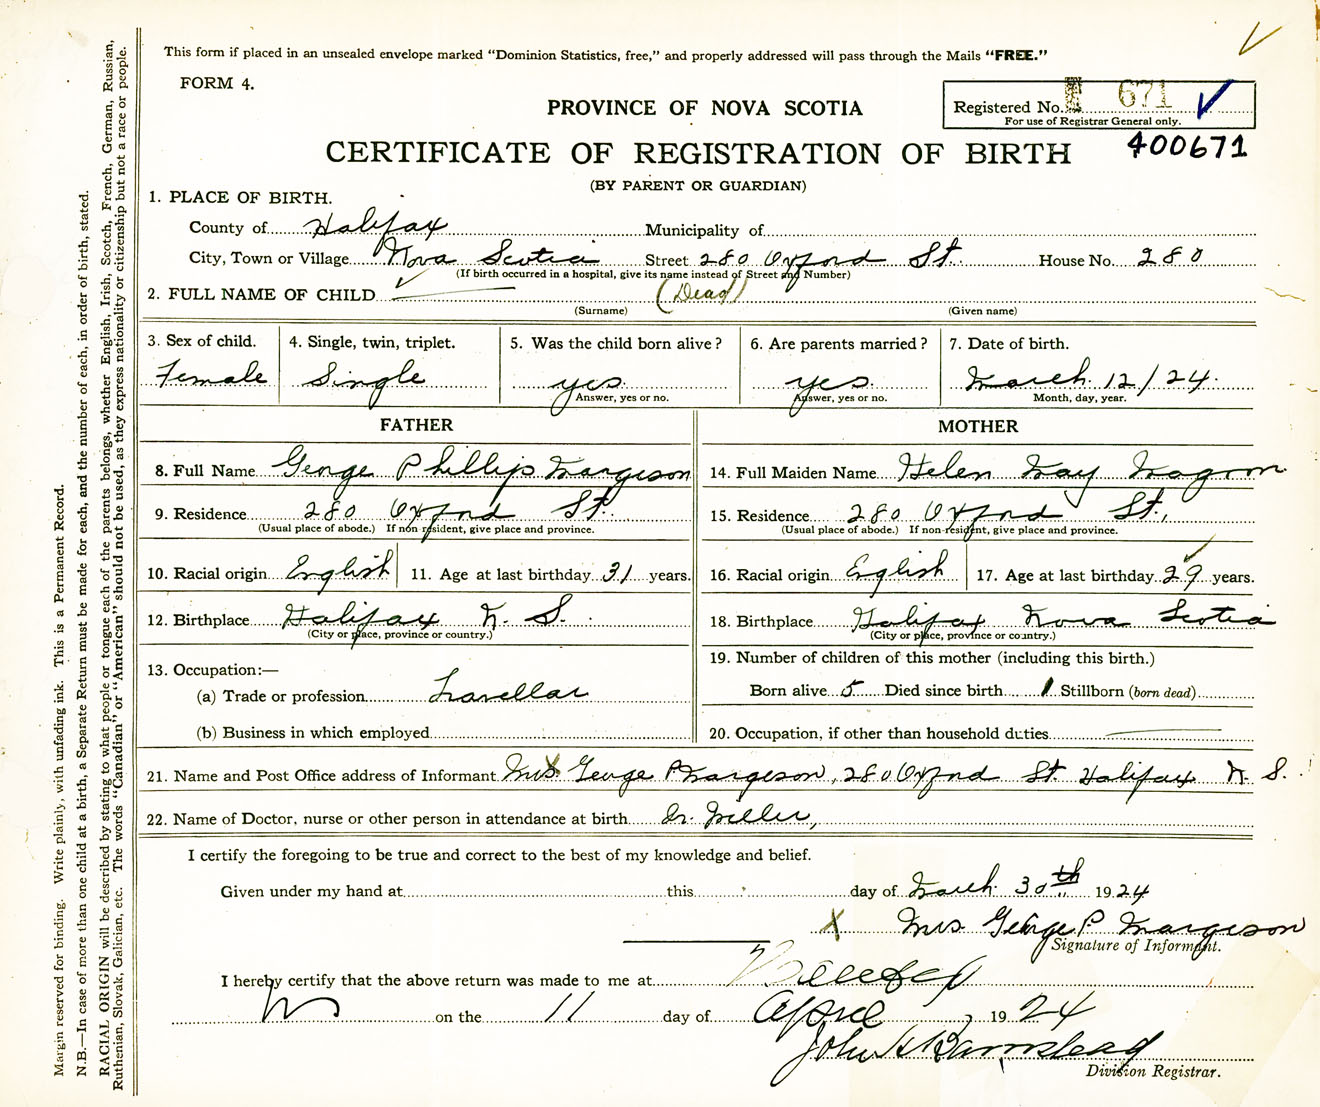 This form if placed in an unsealed envelope marked "Dominion Statistics, free," and properly addressed will pass through the Mails "FREE."
FORM 4.
PROVINCE OF NOVA SCOTIA
Registered No. 671
For use of Registrar General only.
400671
CERTIFICATE OF REGISTRATION OF BIRTH
(BY PARENT OR GUARDIAN)
1. PLACE OF BIRTH.
County of Halifax Municipality of
City, Town or Village Nova Scotia Street 280 Oxford St. House No. 280
(If birth occurred in a hospital, give its name instead of Street and Number)
2. FULL NAME OF CHILD (Dead)
(Surname) (Given name)
3. Sex of child. 4. Single, twin, triplet. 5. Was the child born alive? 6. Are parents married? 7. Date of birth.
Female Single yes. yes. March 12/24.
Answer, yes or no. Answer, yes or no. Month, day, year.
FATHER MOTHER
8. Full Name George Phillip Margeson 14. Full Maiden Name Helen May
9. Residence 280 Oxford St. 15. Residence 280 Oxford St.,
(Usual place of abode.) If non resident, give place and province. (Usual place of abode.) If non-resident, give place and province.
10. Racial origin English 11. Age at last birthday 31 years. 16. Racial origin English 17. Age at last birthday 29 years.
12. Birthplace Halifax N. S. 18. Birthplace Halifax Nova Scotia
(City or place, province or country.) (City or place, province or country.)
13. Occupation:— 19. Number of children of this mother (including this birth.)
(a) Trade or profession Travellar Born alive 5 Died since birth 1 Stillborn (born dead)
(b) Business in which employed 20. Occupation, if other than household duties
21. Name and Post Office address of Informant Mrs. George P. Margeson, 280 Oxford St. Halifax N. S.
22. Name of Doctor, nurse or other person in attendance at birth Dr. Miller,
I certify the foregoing to be true and correct to the best of my knowledge and belief.
Given under my hand at this day of March 30th 1924
X Mrs. George P. Margeson
Signature of Informant.
I hereby certify that the above return was made to me at Halifax
NS on the 11 day of April, 1924
John H Barnstead
Division Registrar.
Margin reserved for binding. Write plainly, with unfading ink. This is a Permanent Record.
N.B.—In case of more than one child at a birth, a Separate Return must be made for each, and the number of each, in order of birth, stated.
RACIAL ORIGIN will be described by stating to what people or tongue each of the parents belongs, whether English, Irish, Scotch, French, German, Russian,
Ruthenian, Slovak, Galician, etc. The words "Canadian" or "American" should not be used, as they express nationality or citizenship but not a race or people.